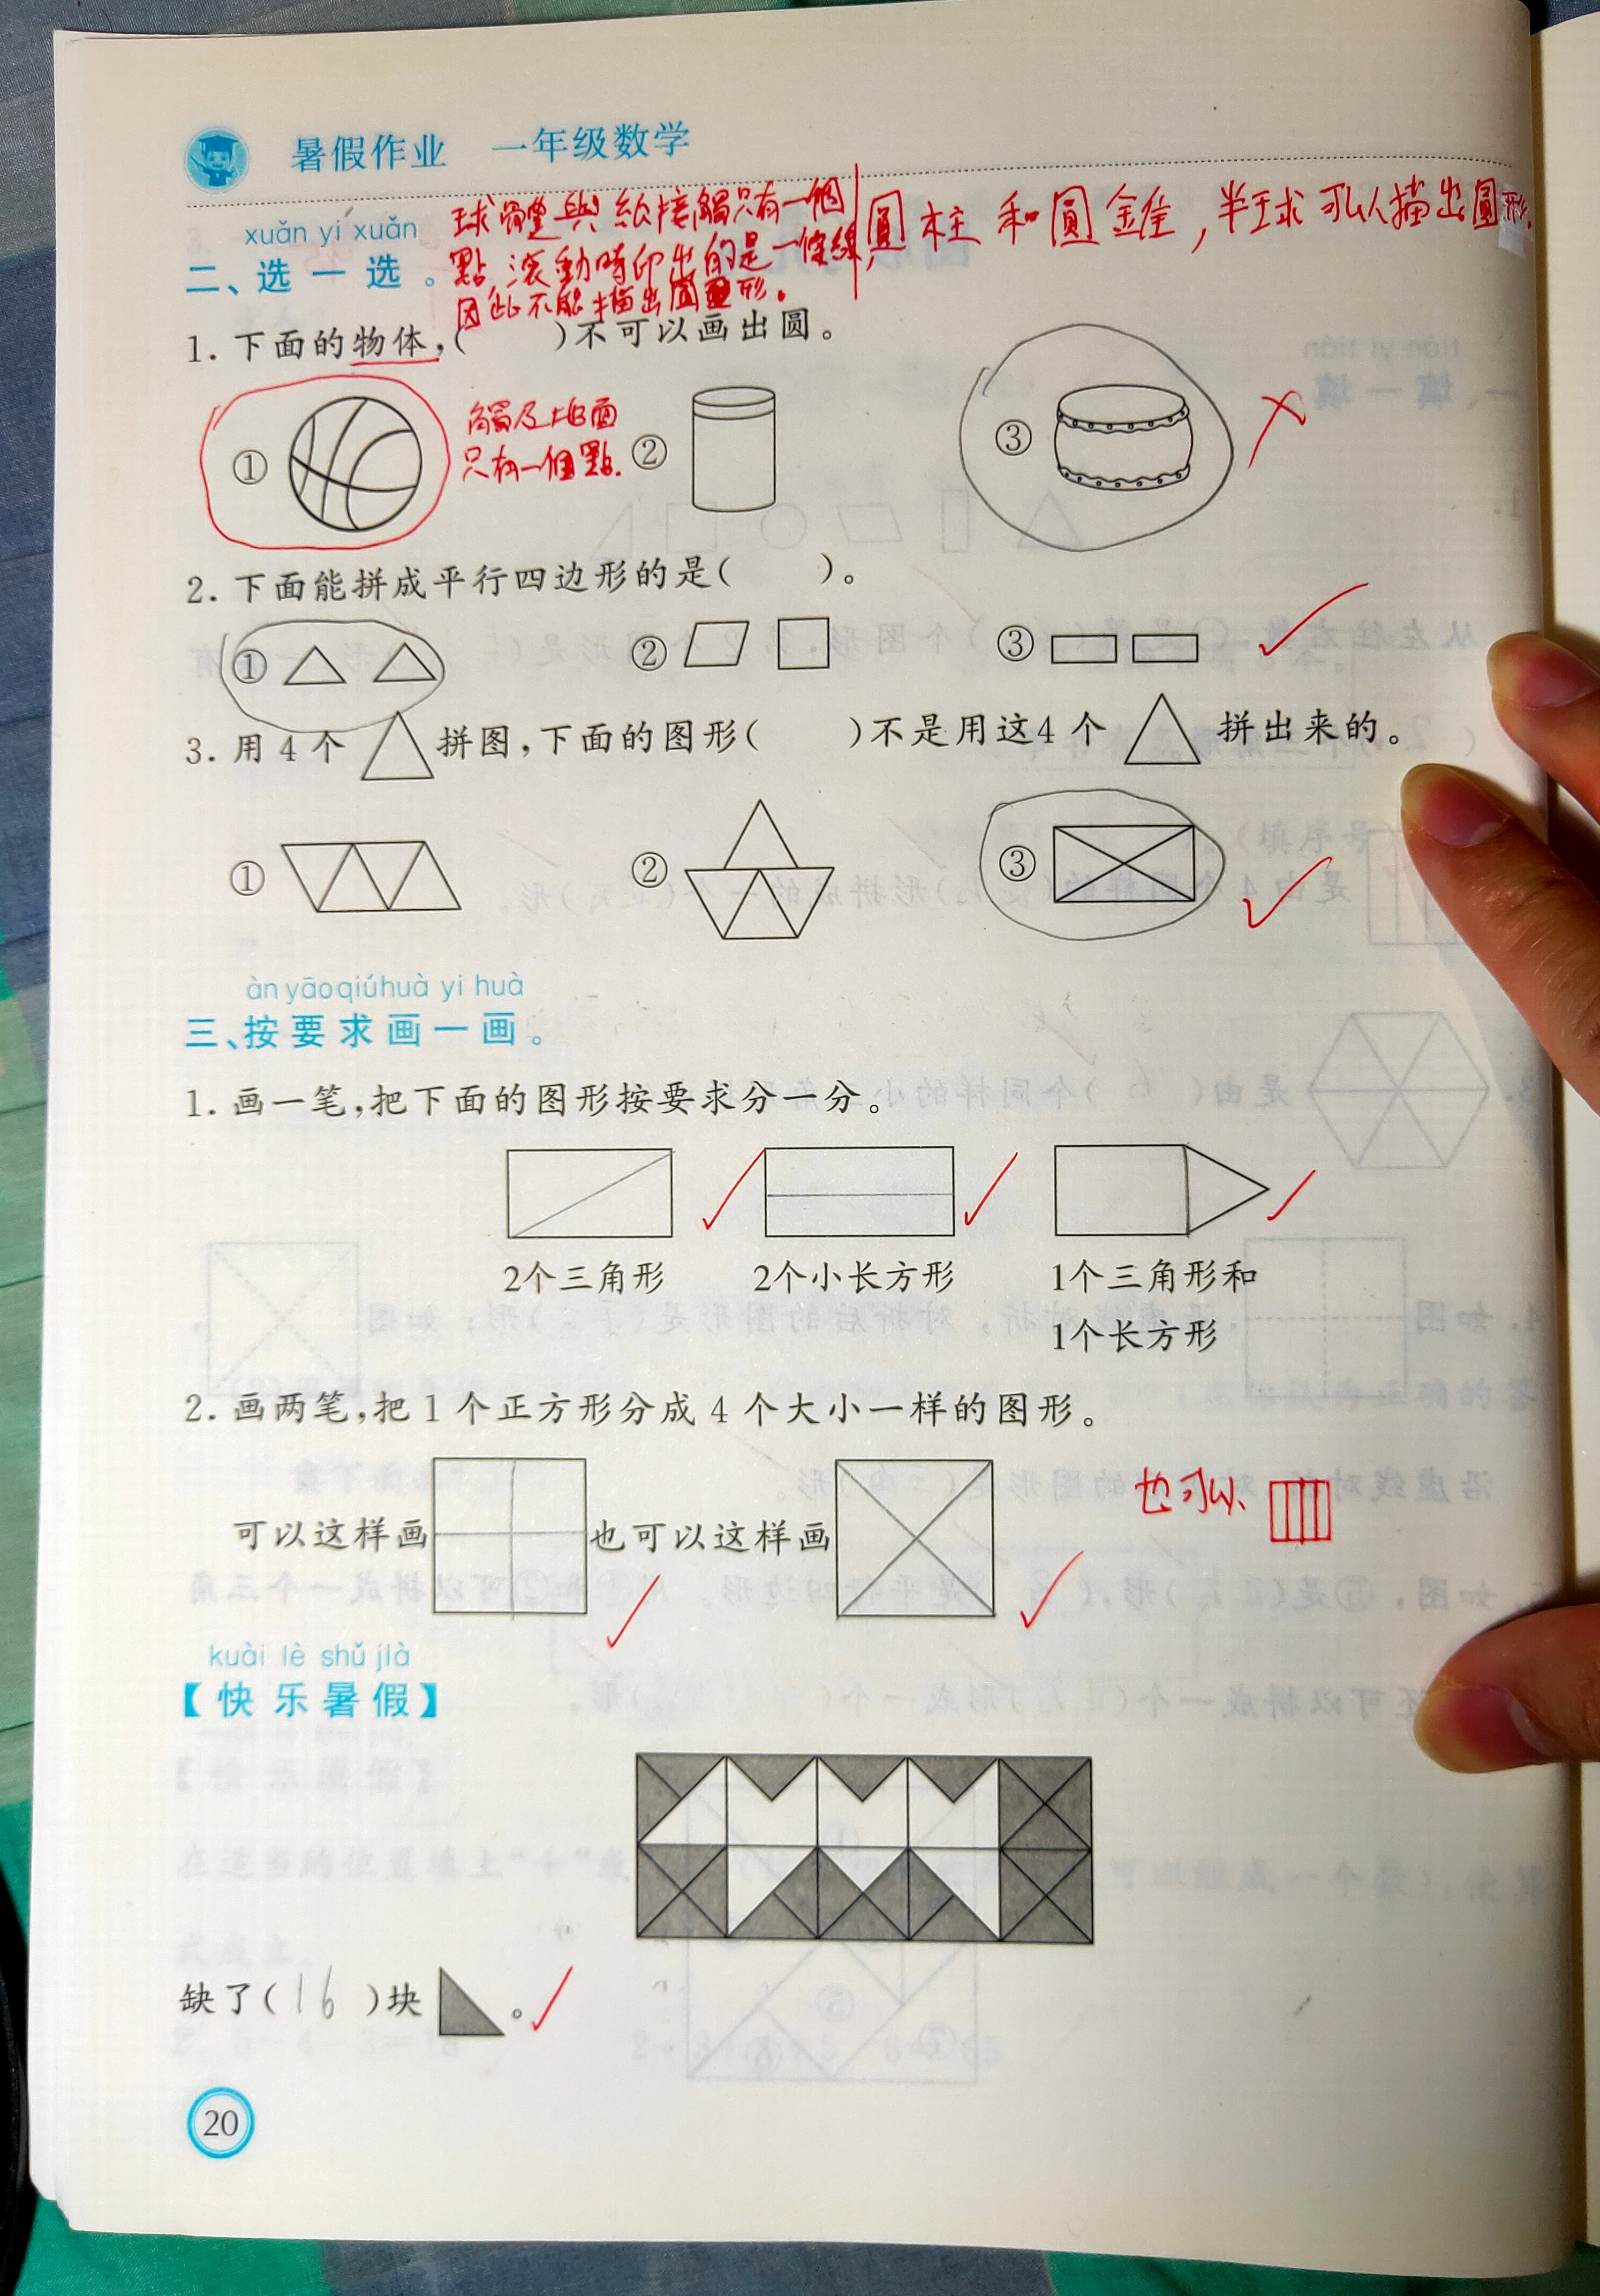 暑假作业 一年级数学
球體與紙接觸只有一個
點,滾動時印出的是一條線,
因此不能描出圓形。
圓柱和圓錐,半球可以描出圓形.
xuǎn yì xuǎn
二、选一选。
1. 下面的物体,( )不可以画出圆。
① ② ③
觸及地面
只有一個點.
2. 下面能拼成平行四边形的是( )。
① ② ③
3. 用4个 拼图,下面的图形( )不是用这4个 拼出来的。
① ② ③
àn yāo qiú huà yi huà
三、按要求画一画。
1. 画一笔,把下面的图形按要求分一分。
2个三角形 2个小长方形 1个三角形和
1个长方形
2. 画两笔,把1个正方形分成4个大小一样的图形。
可以这样画 也可以这样画
也可以
kuài lè shǔ jià
【快乐暑假】
缺了(16)块 。
20